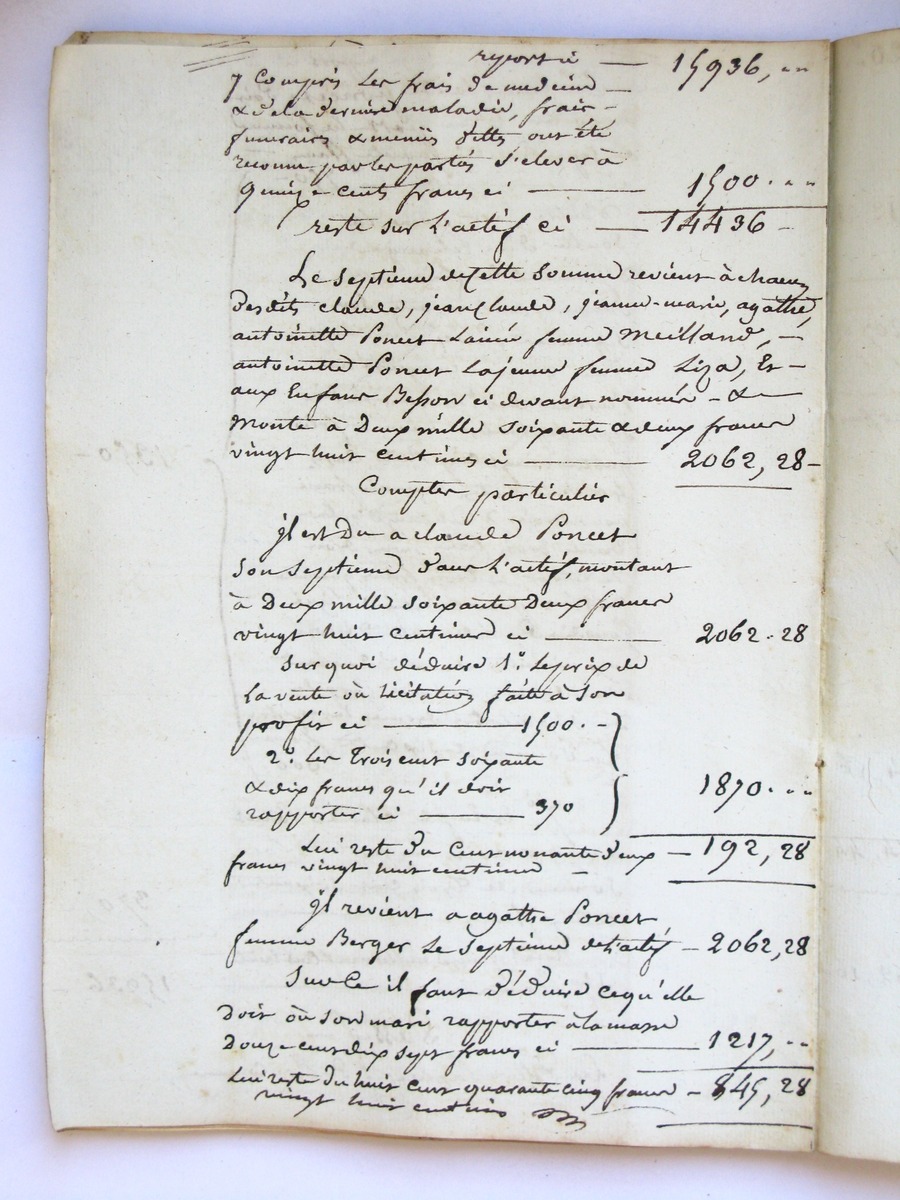 reporté — 15936, „ „
y compris les frais de medecin —
& de la derniere maladie, frais —
funeraires & menües dettes ont été
reconnu par les parties s'elever à
quinze cents francs ci — 1500 . „ „
reste sur l'actif ci — 14436 -
Le septieme de cette somme revient à chacun
desdits claude, jean claude, jeanne-marie, agathe,
antoinette Poncet lainée femme Meilland, —
antoinette Poncet lajeune femme Liza, Et —
aux Enfans Besson ci devant nommés - & —
Monte à Deux mille soixante & deux francs
vingt huit centimes ci — 2062, 28 -
Comptes particuliers
jl est du a claude Poncet
son septieme dans l'actif, montant
à Deux mille soixante Deux francs
vingt huit centimes ci — 2062 . 28
sur quoi déduire 1.° le prix de
la vente où licitation faite à son
profit ci — 1500 . -
2.° les Trois cent soixante
& dix francs qu'il doit 1870 . „ „
rapporter ci — 370
Lui reste du Cent nonante deux — 192, 28
francs vingt huit centimes —
jl revient a agathe Poncet
femme Berger le septieme de l'actif — 2062, 28
sur ce il faut déduire ce qu'elle
doit où son mari rapporter à la masse
Douze cent dix sept francs ci — 1217, „ „
Lui reste du huit cent quarante cinq francs — 845, 28
vingt huit centimes